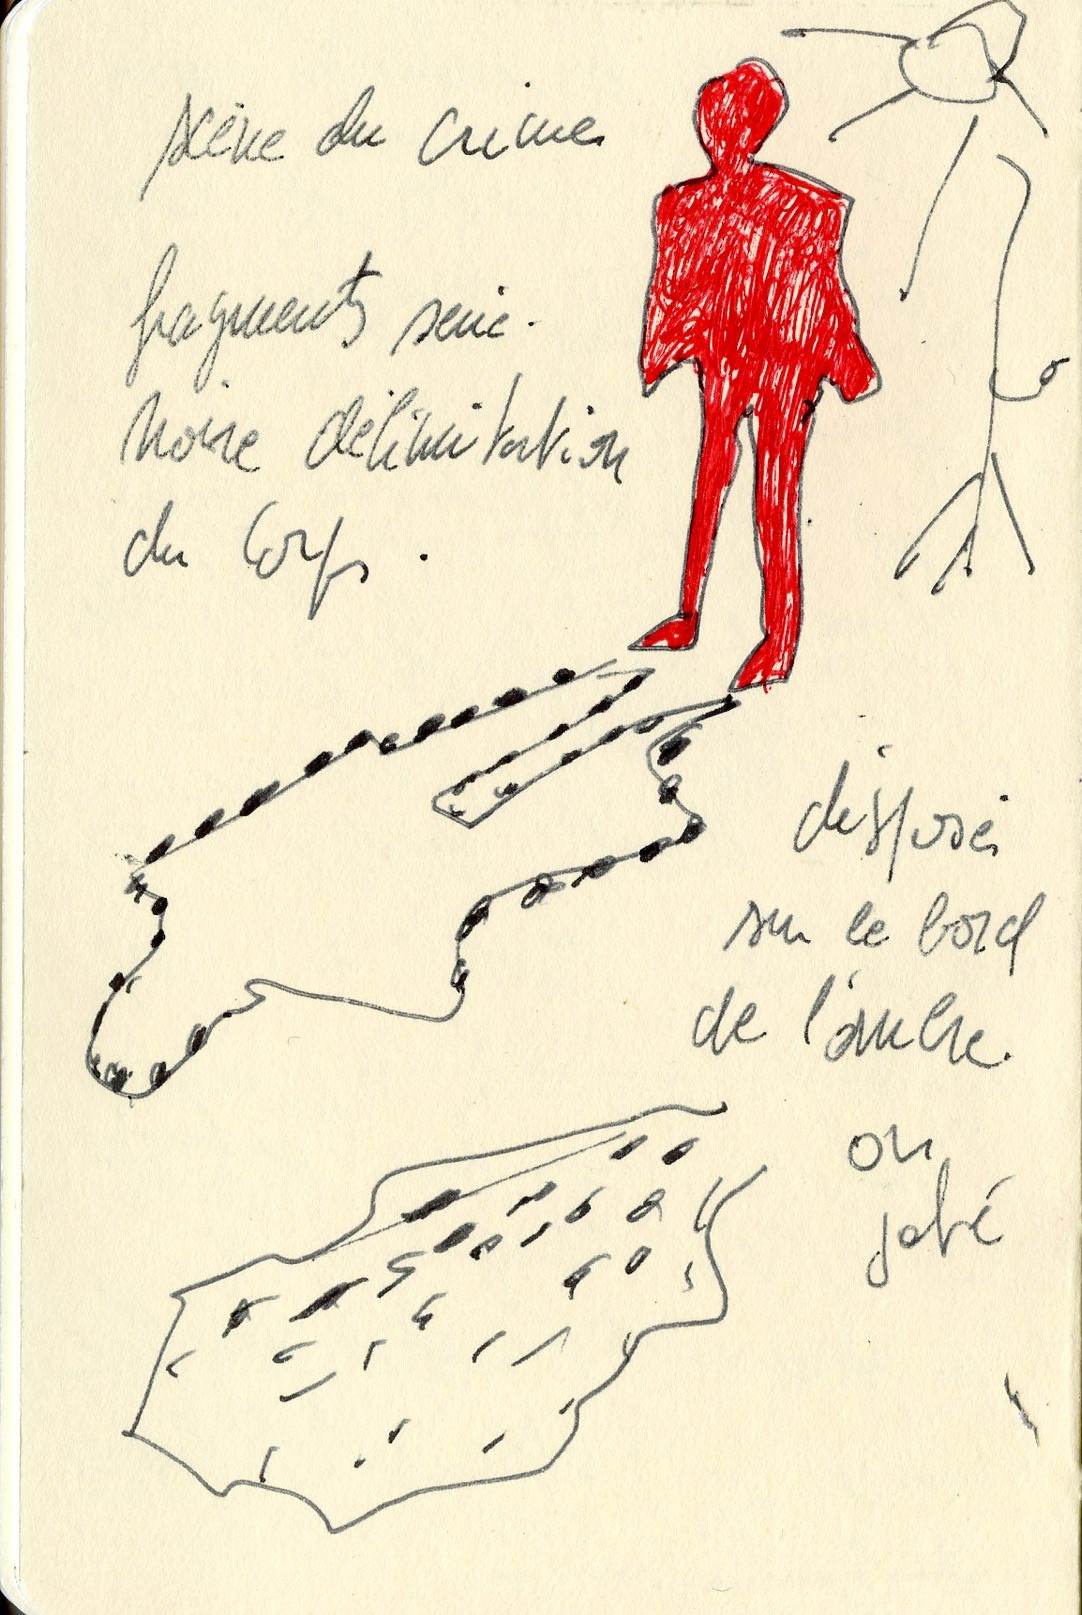 scène du crime
fragments série
noire délimitation
du corps.
disposés
sur le bord
de l'ombre.
ou
jeté